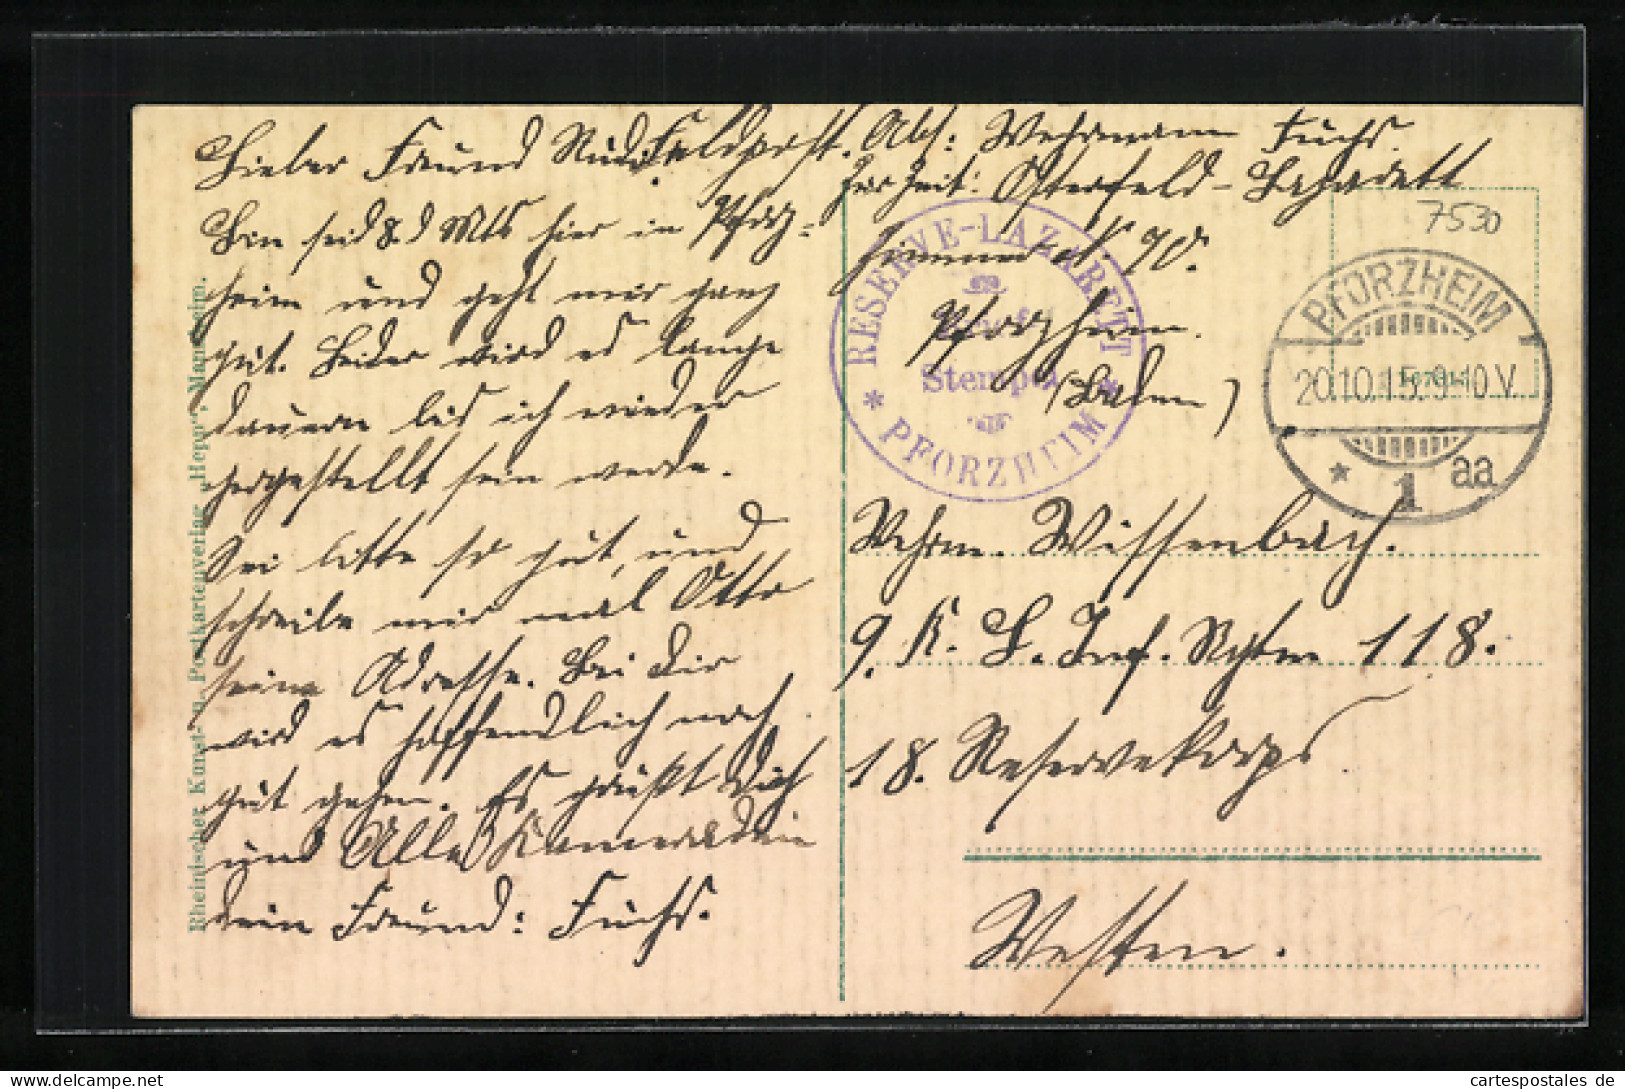 Lieber Freund Rudi!
Bin seid 8. d Mts hier in Pforz=
heim und geht mir ganz
gut. Leider wird es lange
dauern bis ich wieder
hergestellt sein werde.
Sei bitte so gut, und
schreibe mir mal Otto
seine Adresse. Bei Dir
wird es hoffendlich noch
gut gehen. Es grüßt Dich
und Alle Kameraden
Dein Freund: Fuchs.
Feldpost. Abs: Wehrmann Fuchs.
Zur Zeit: Osterfeld-Lazarett
Zimmer No 70.
Pforzheim.
(Baden)
7530
RESERVE-LAZARETT
Stempel
* PFORZHEIM *
PFORZHEIM
20.10.15.9-10V.
* 1 aa
Wehrm. Wissenbach.
9. K. L. Inf. Rgtm 118.
18. Reservekorps
Westen.
Rheinischer Kunst- u. Postkartenverlag „Hepp", Mannheim.
cartespostales de